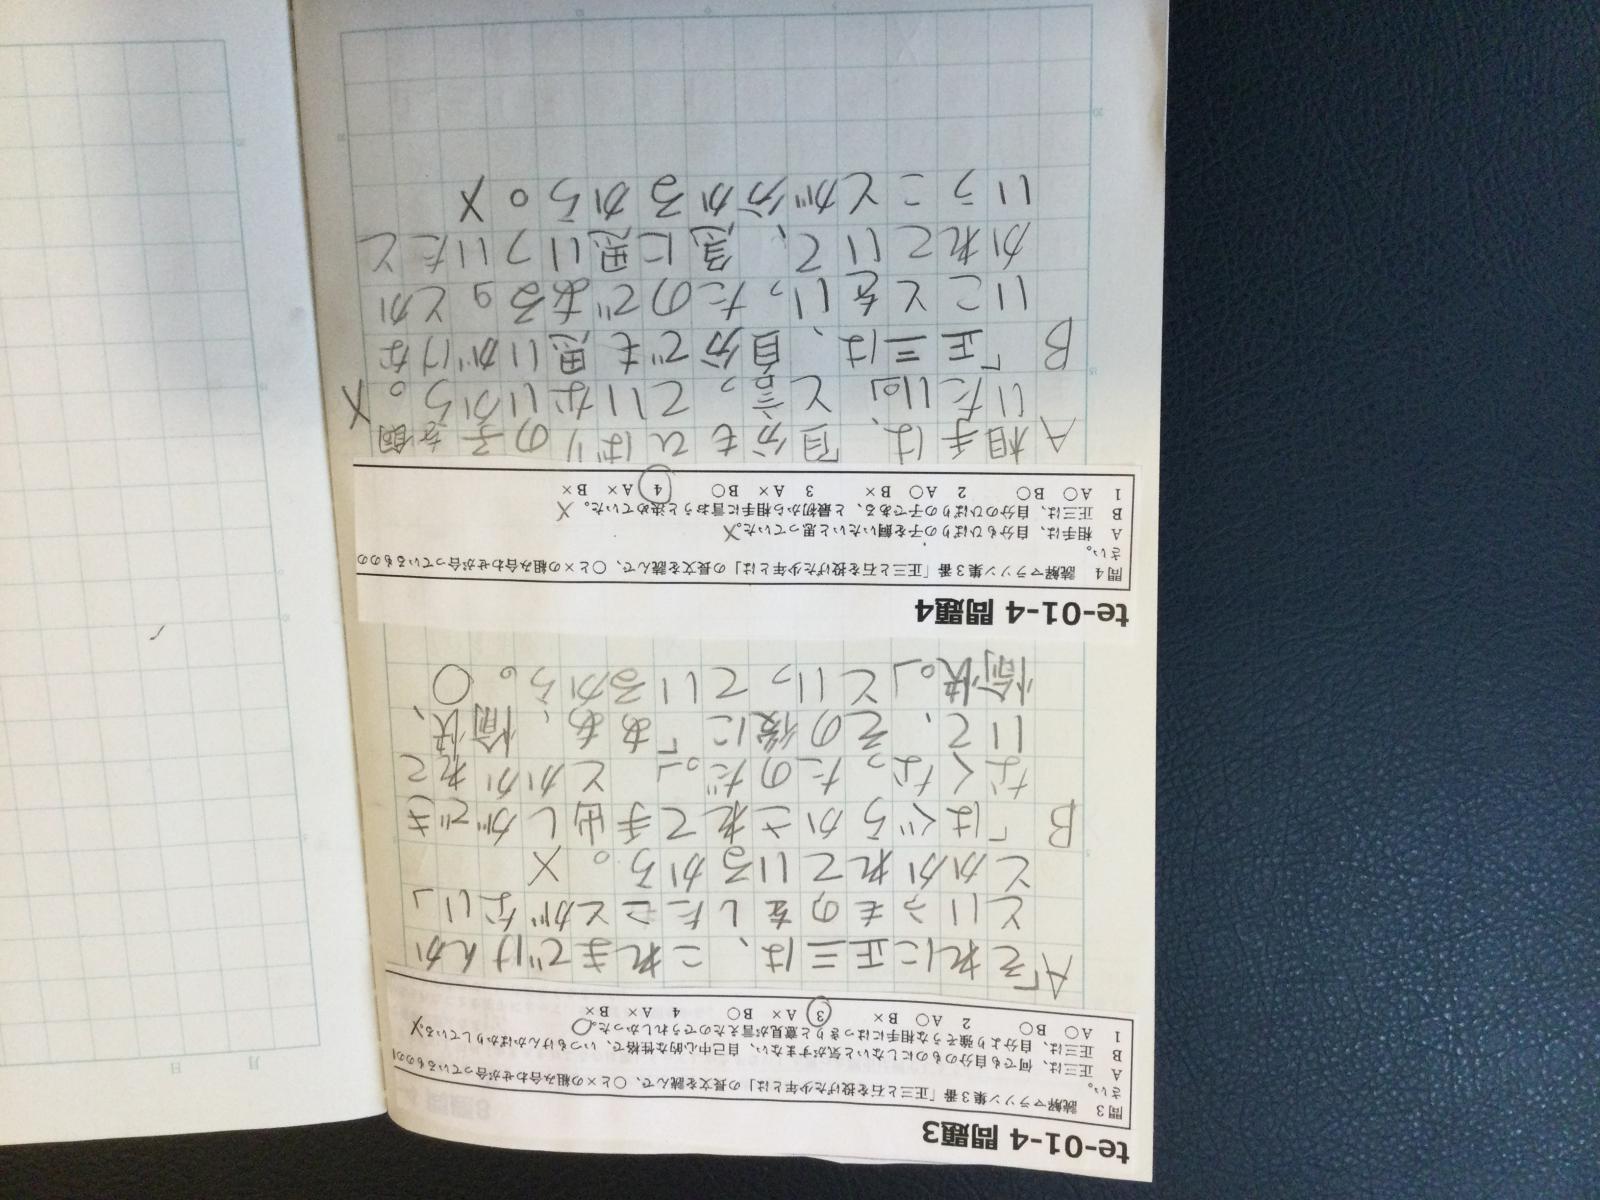 te-01-4 問題3
問3 読解マラソン集3番「正三と石を投げた少年とは」の長文を読んで、○と×の組み合わせが合っているものの
さい。
A 正三は、何でも自分のものにしないと気がすまない、自己中心的な性格で、いつもけんかばかりしている。×
B 正三は、自分より強そうな相手にはっきりと意見が言えたのでうれしかった。○
1 A○ B○ 2 A○ B× 3 A× B○ 4 A× B×
A「それに正三は、これまでけんか
というものをしたことがない」
とかかれているから。×
B「はぐらかされて手出しができ
なくなったのだ。」とかかれて
いて、その後に「ああ、愉快、
愉快。」といっているから。○
te-01-4 問題4
問4 読解マラソン集3番「正三と石を投げた少年とは」の長文を読んで、○と×の組み合わせが合っているものの
さい。
A 相手は、自分もひばりの子を飼いたいと思っていた。×
B 正三は、自分のひばりの子である、と最初から相手に言おうと決めていた。×
1 A○ B○ 2 A○ B× 3 A× B○ 4 A× B×
A 相手は、自分もひばりの子を飼
いたい。と言っていないから。×
B「正三は、自分でも思いがけな
いことをいったのである。とか
かれていて、急に思いついたと
いうことが分かるから。×
月 日